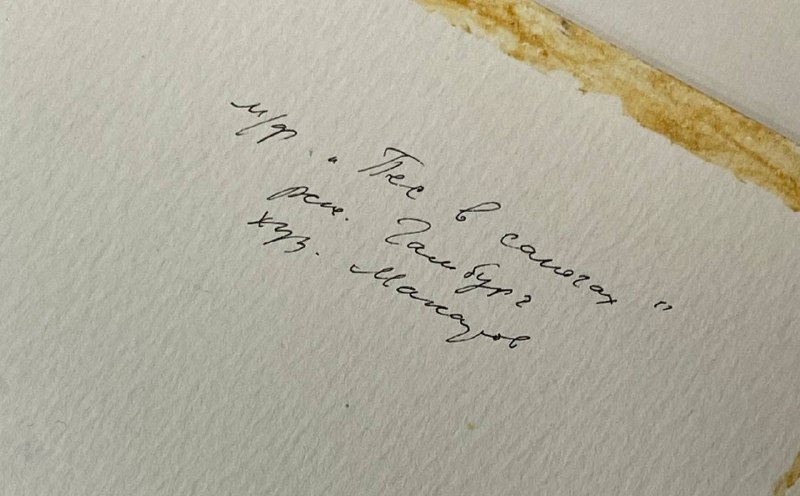 м/ф. "Пес в сапогах"
реж. Гамбург
худ. Макаров